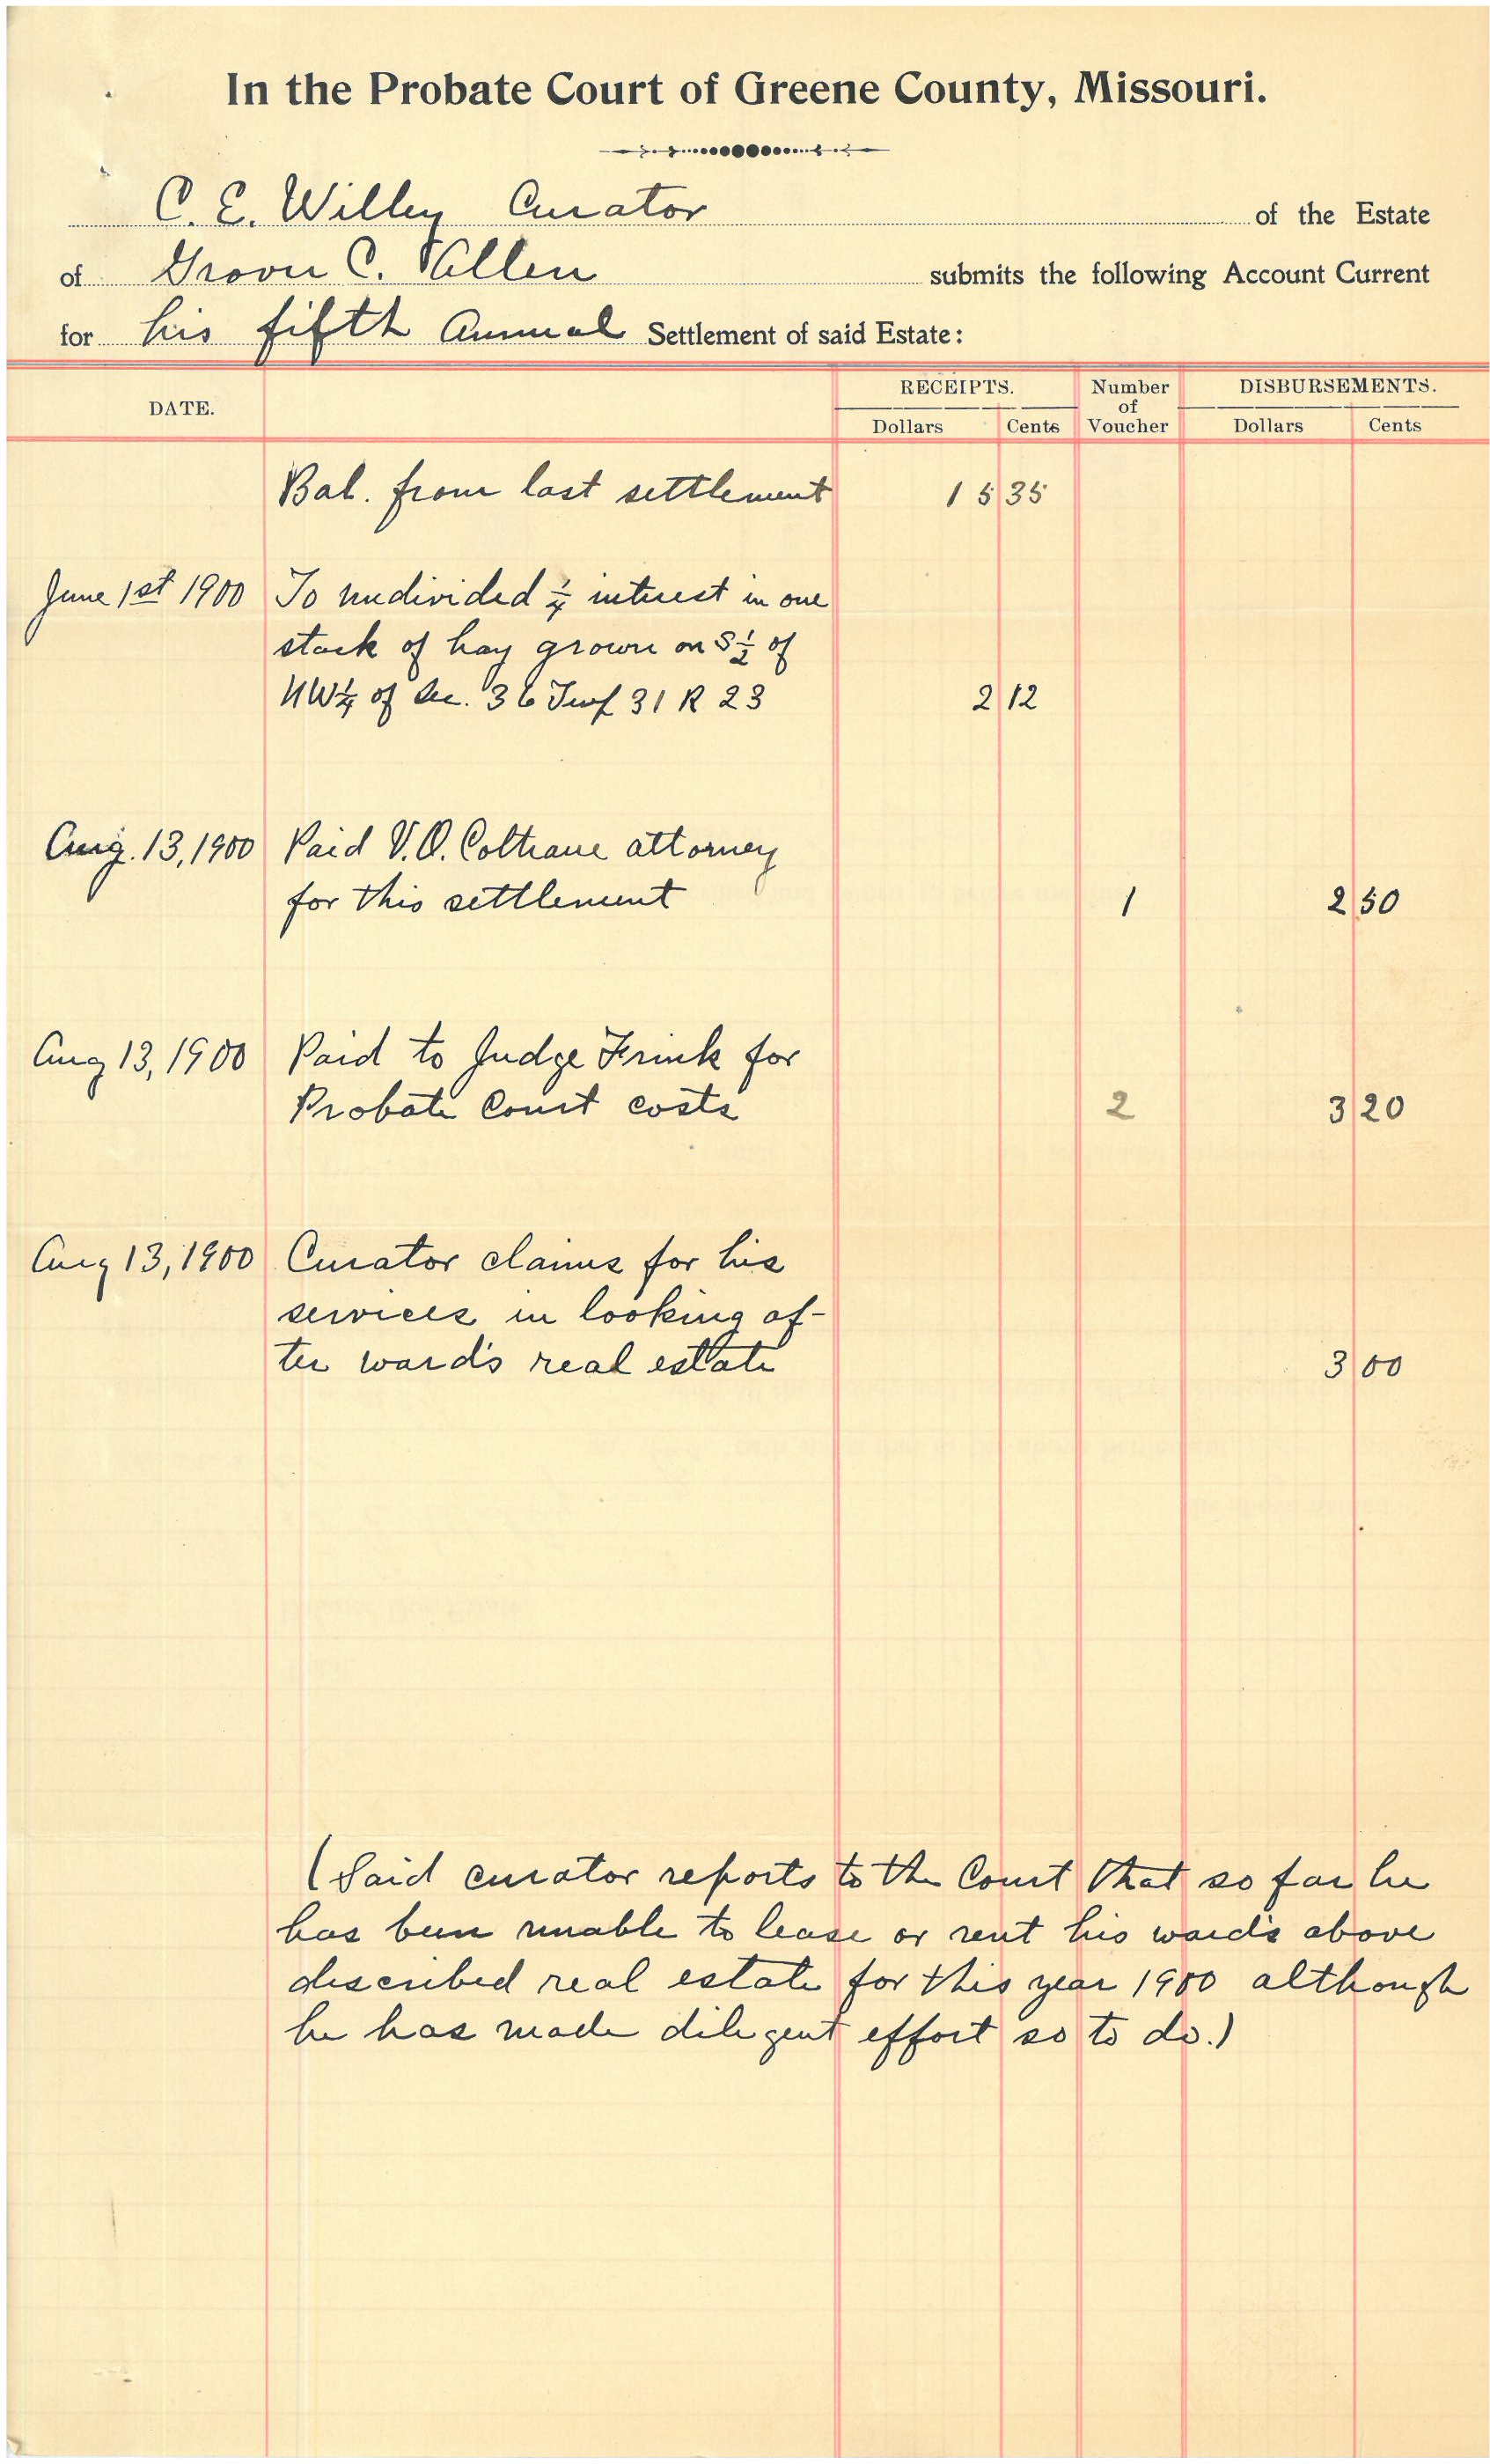 In the Probate Court of Greene County, Missouri.
C. E. Willey Curator of the Estate
of Grover C. Allen submits the following Account Current
for his fifth Annual Settlement of said Estate:
DATE. RECEIPTS. Number of Voucher DISBURSEMENTS.
Dollars Cents Dollars Cents
Bal. from last settlement 15 35
June 1st 1900 To undivided 1/4 interest in one
stack of hay grown on S 1/2 of
NW 1/4 of Sec. 36 Twp 31 R 23 2 12
Aug. 13, 1900 Paid V. O. Coltrane attorney
for this settlement 1 2 50
Aug 13, 1900 Paid to Judge Frink for
Probate Court costs 2 3 20
Aug 13, 1900 Curator claims for his
services in looking af-
ter ward's real estate 3 00
(Said curator reports to the Court that so far he
has been unable to lease or rent his ward's above
described real estate for this year 1900 although
he has made diligent effort so to do.)